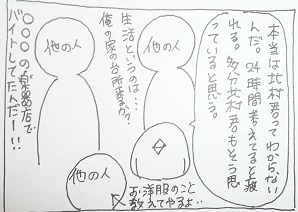 本当は北村君ってわからない
んだ。24時間考えてると疲
れる。多分北村君もそう思
っていると思う。
他の人
生活というのは…
俺の家の台所事か?
他の人
○○○の楽器店で
バイトしてたんだー!!
お洋服のこと
教えてやるよ…
他の人